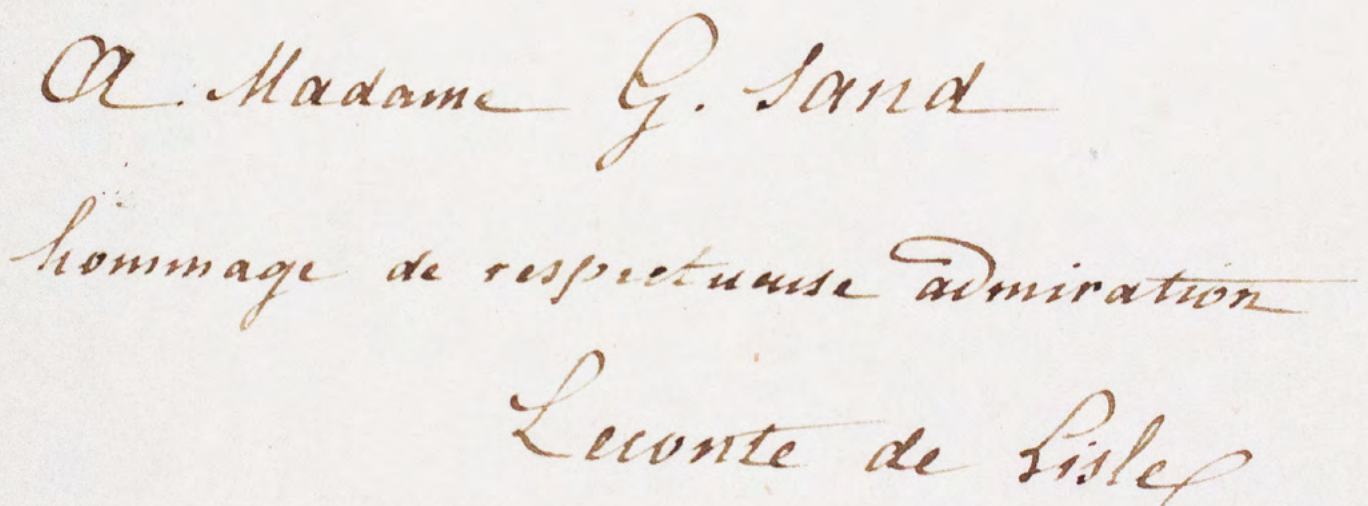 A Madame G. Sand
hommage de respectueuse admiration
Leconte de Lisle